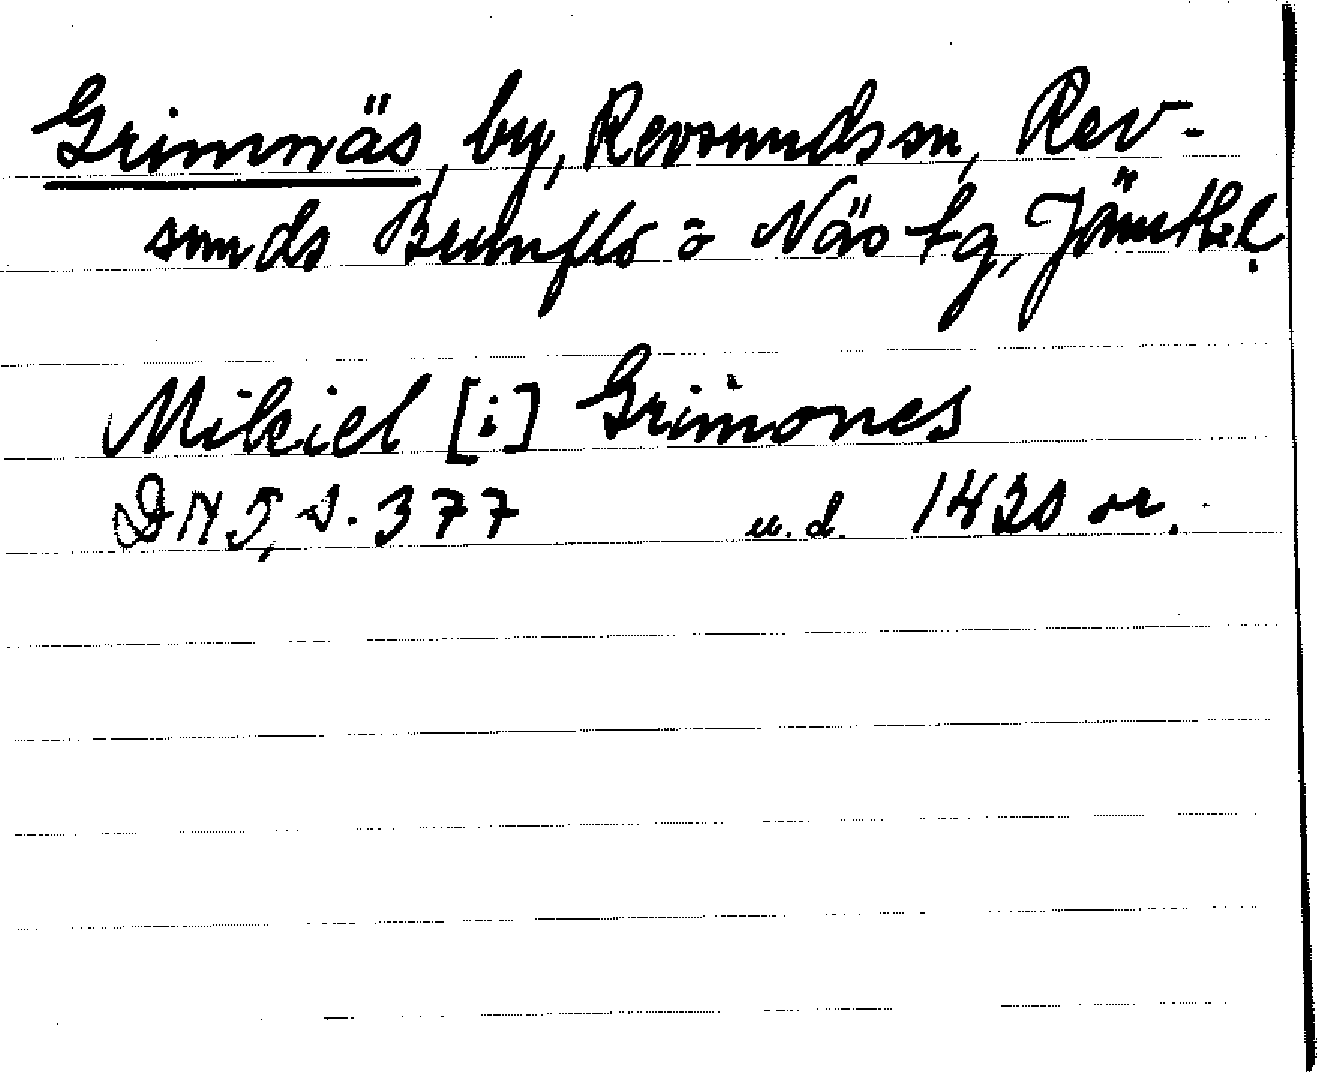 Grimnäs, by, Revsunds sn, Rev-
sunds Brunflo o Näs tg, Jämtl.
Mikiel [i] Grimones
DN 5, s. 377 u.d. 1430 or.